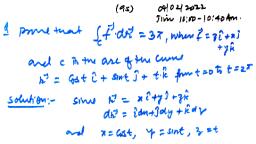 (95) 04/02/2022
Time 10:00-10:40 Am.
Q prove that ∫_c F⃗·dr⃗ = 3π, where F⃗ = zî + xĵ
+ yk̂
and c is the arc of the curve
r⃗ = cost î + sint ĵ + t k̂ from t=0 to t=2π
solution:- since r⃗ = xî + yĵ + zk̂
dr⃗ = îdx + ĵdy + k̂dz
and x = cost, y = sint, z = t